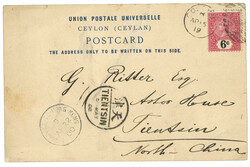 UNION POSTALE UNIVERSELLE
CEYLON (CEYLAN)
POSTCARD
THE ADDRESS ONLY TO BE WRITTEN ON THIS SIDE.
6c
G. Ritter Esq
Astor House
Tientsin
North-China
TIENTSIN
天津